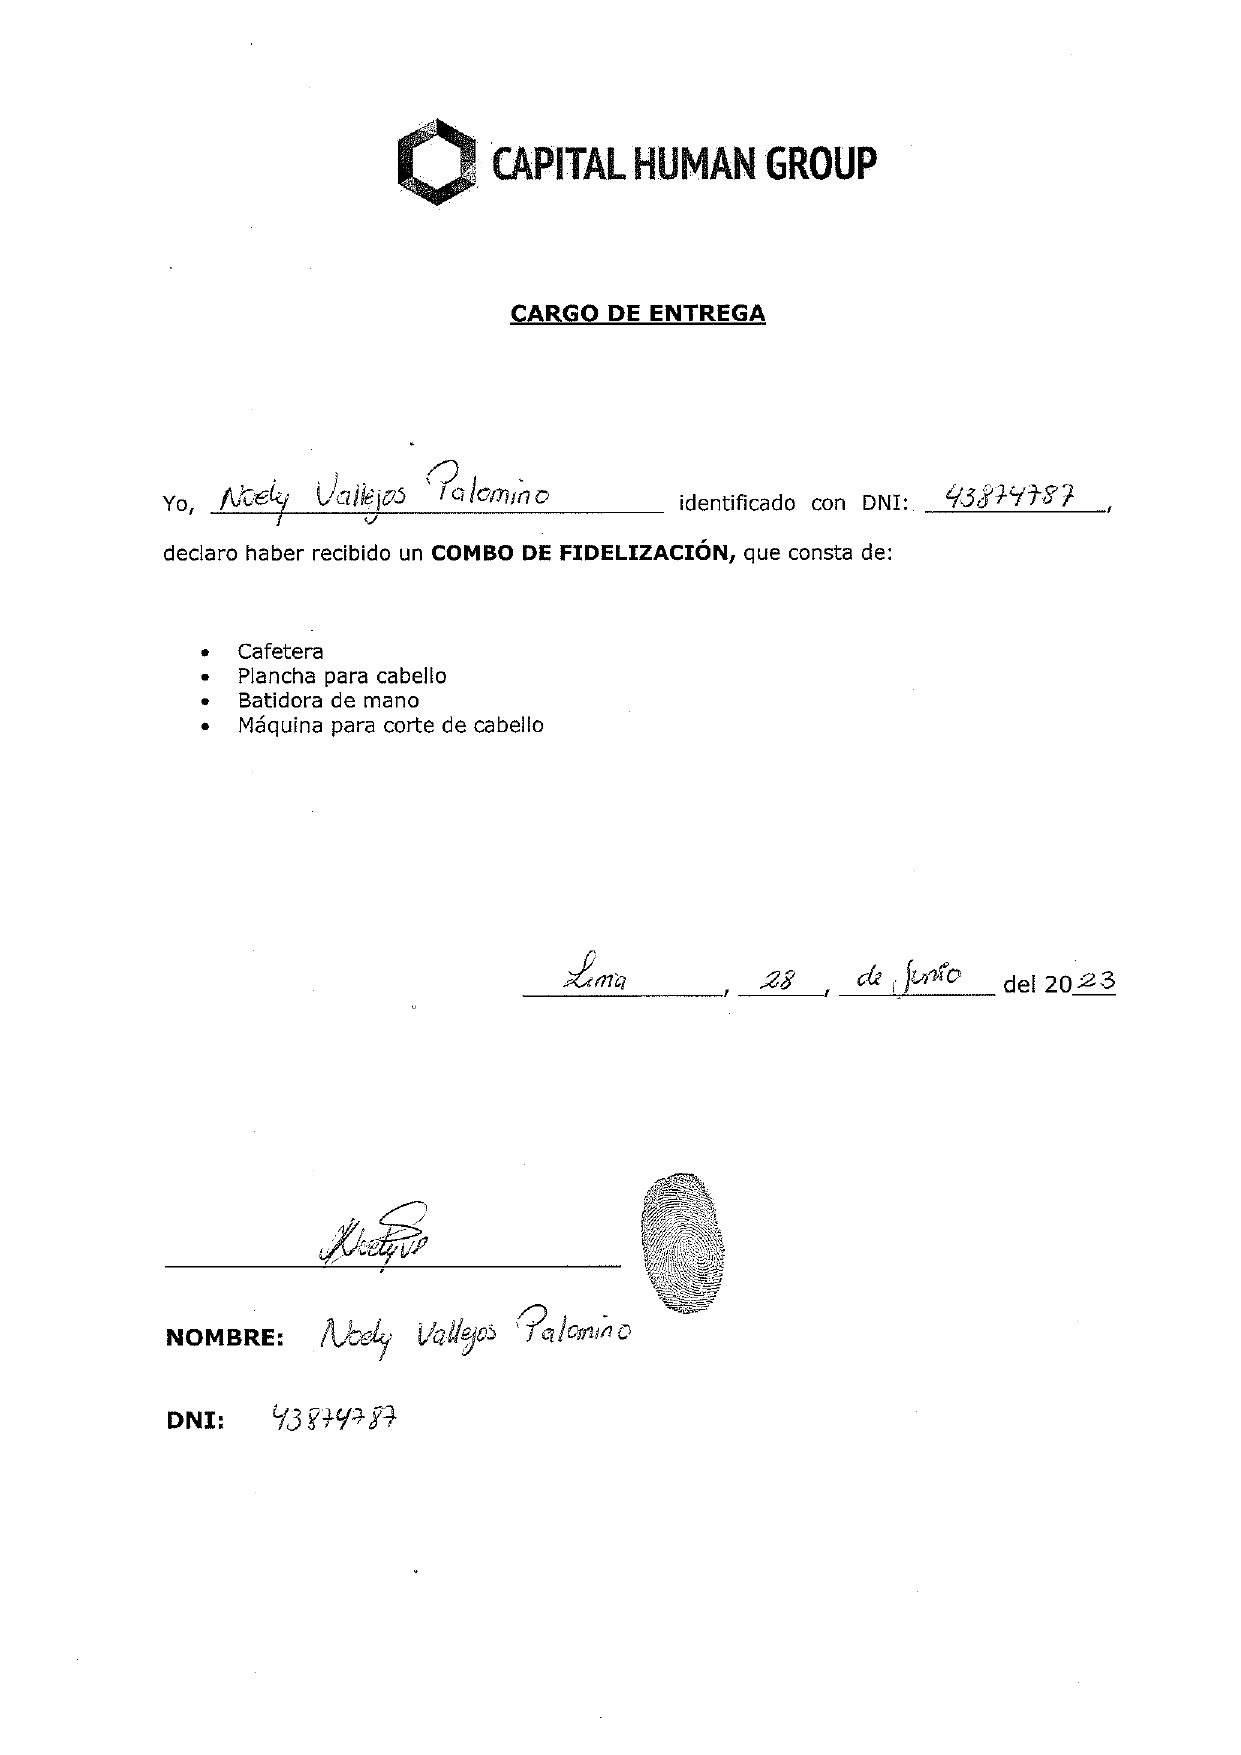 CAPITAL HUMAN GROUP
CARGO DE ENTREGA
Yo, Noely Vallejos Palomino identificado con DNI: 43874787,
declaro haber recibido un COMBO DE FIDELIZACIÓN, que consta de:
• Cafetera
• Plancha para cabello
• Batidora de mano
• Máquina para corte de cabello
Lima, 28, de Junio del 2023
NoelyVP
NOMBRE: Noely Vallejos Palomino
DNI: 43874787